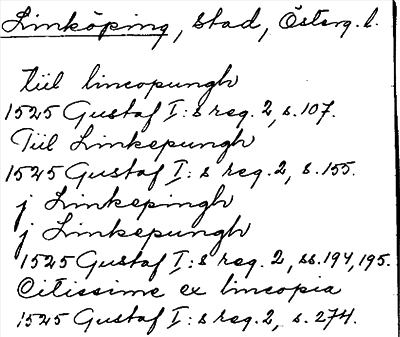 Linköping, stad, Österg. l.
tiil lincopungh
1525 Gustaf I:s reg. 2, s. 107.
Tiil Linkepungh
1525 Gustaf I:s reg. 2, s. 155.
j Linkepingh
j Linkepungh
1525 Gustaf I:s reg. 2, ss. 194, 195.
Citissime ex lincopia
1525 Gustaf I:s reg. 2, s. 274.